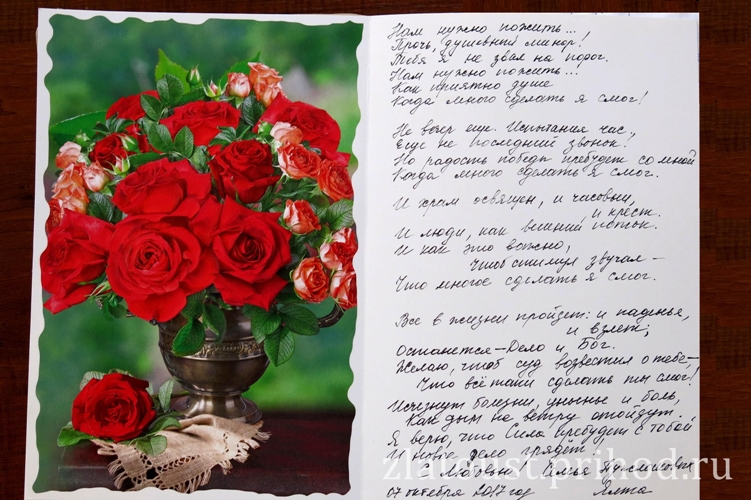 Нам нужно пожить...
Прочь, душевный минор!
Тебя я не звал на порог.
Нам нужно пожить...
Как приятно душе
Когда много сделать я смог!
Не вечер еще. Испытания час,
Еще не последний звонок!
Но радость победы пребудет со мной
Когда много сделать я смог.
И храм освящен, и часовни,
и крест.
И люди, как вешний поток.
И как это важно,
Чтоб стимул звучал –
Что многое сделать я смог.
Все в жизни пройдет: и паденья,
и взлет;
Останется – Дело и Бог.
Желаю, чтоб суд возвестил о тебе –
Что всё таки сделать ты смог!
Исчезнут болезни, унынье и боль,
Как дым на ветру отойдут.
Я верю, что Сила пребудет с тобой
И новые дело грядёт.
С Любовью, Семья
07 октября 2017 год
zlatoust.prihod.ru